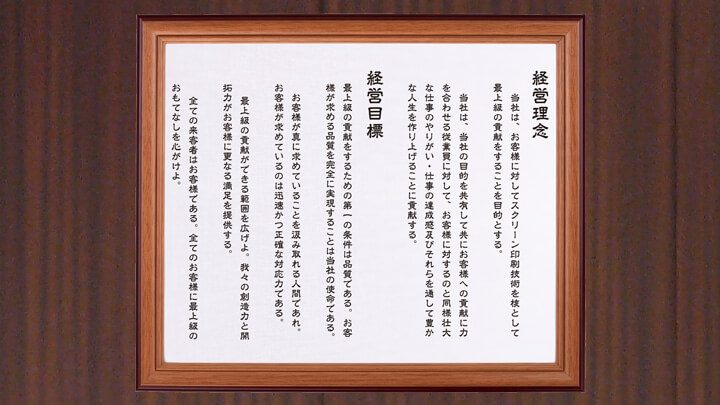 経営理念
当社は、お客様に対してスクリーン印刷技術を核として
最上級の貢献をすることを目的とする。
当社は、当社の目的を共有して共にお客様への貢献に力
を合わせる従業員に対して、お客様に対するのと同様壮大
な仕事のやりがい・仕事の達成感及びそれらを通して豊か
な人生を作り上げることに貢献する。
経営目標
最上級の貢献をするための第一の条件は品質である。お客
様が求める品質を完全に実現することは当社の使命である。
お客様が真に求めていることを汲み取れる人間であれ。
お客様が求めているのは迅速かつ正確な対応力である。
最上級の貢献ができる範囲を広げよ。我々の創造力と開
拓力がお客様に更なる満足を提供する。
全ての来客者はお客様である。全てのお客様に最上級の
おもてなしを心がけよ。